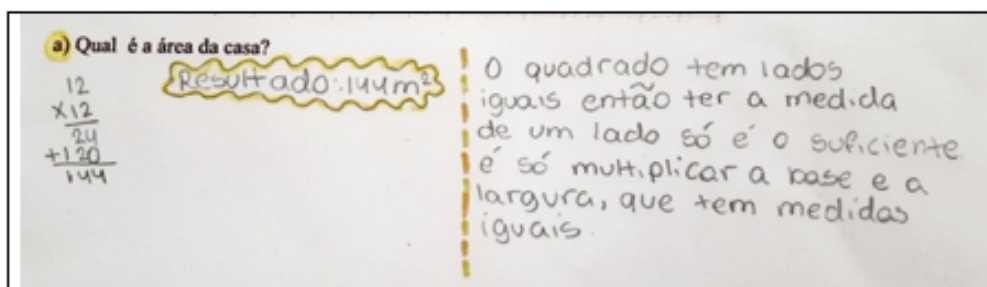 a) Qual é a área da casa?
12
x12
24
+120
144
Resultado: 144m²
O quadrado tem lados
iguais então ter a medida
de um lado só é o suficiente.
é só multiplicar a base e a
largura, que tem medidas
iguais.